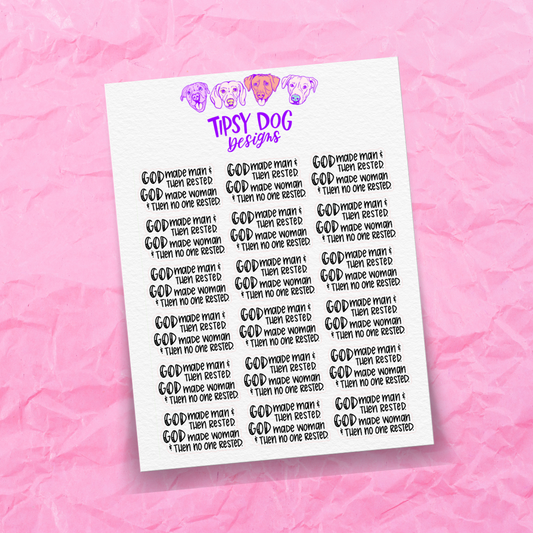 TIPSY DOG
Designs
GOD made man &
THEN RESTED
GOD made woman
& THEN NO ONE RESTED
GOD made man &
THEN RESTED
GOD made woman
& THEN NO ONE RESTED
GOD made man &
THEN RESTED
GOD made woman
& THEN NO ONE RESTED
GOD made man &
THEN RESTED
GOD made woman
& THEN NO ONE RESTED
GOD made man &
THEN RESTED
GOD made woman
& THEN NO ONE RESTED
GOD made man &
THEN RESTED
GOD made woman
& THEN NO ONE RESTED
GOD made man &
THEN RESTED
GOD made woman
& THEN NO ONE RESTED
GOD made man &
THEN RESTED
GOD made woman
& THEN NO ONE RESTED
GOD made man &
THEN RESTED
GOD made woman
& THEN NO ONE RESTED
GOD made man &
THEN RESTED
GOD made woman
& THEN NO ONE RESTED
GOD made man &
THEN RESTED
GOD made woman
& THEN NO ONE RESTED
GOD made man &
THEN RESTED
GOD made woman
& THEN NO ONE RESTED
GOD made man &
THEN RESTED
GOD made woman
& THEN NO ONE RESTED
GOD made man &
THEN RESTED
GOD made woman
& THEN NO ONE RESTED
GOD made man &
THEN RESTED
GOD made woman
& THEN NO ONE RESTED
GOD made man &
THEN RESTED
GOD made woman
& THEN NO ONE RESTED
GOD made man &
THEN RESTED
GOD made woman
& THEN NO ONE RESTED
GOD made man &
THEN RESTED
GOD made woman
& THEN NO ONE RESTED